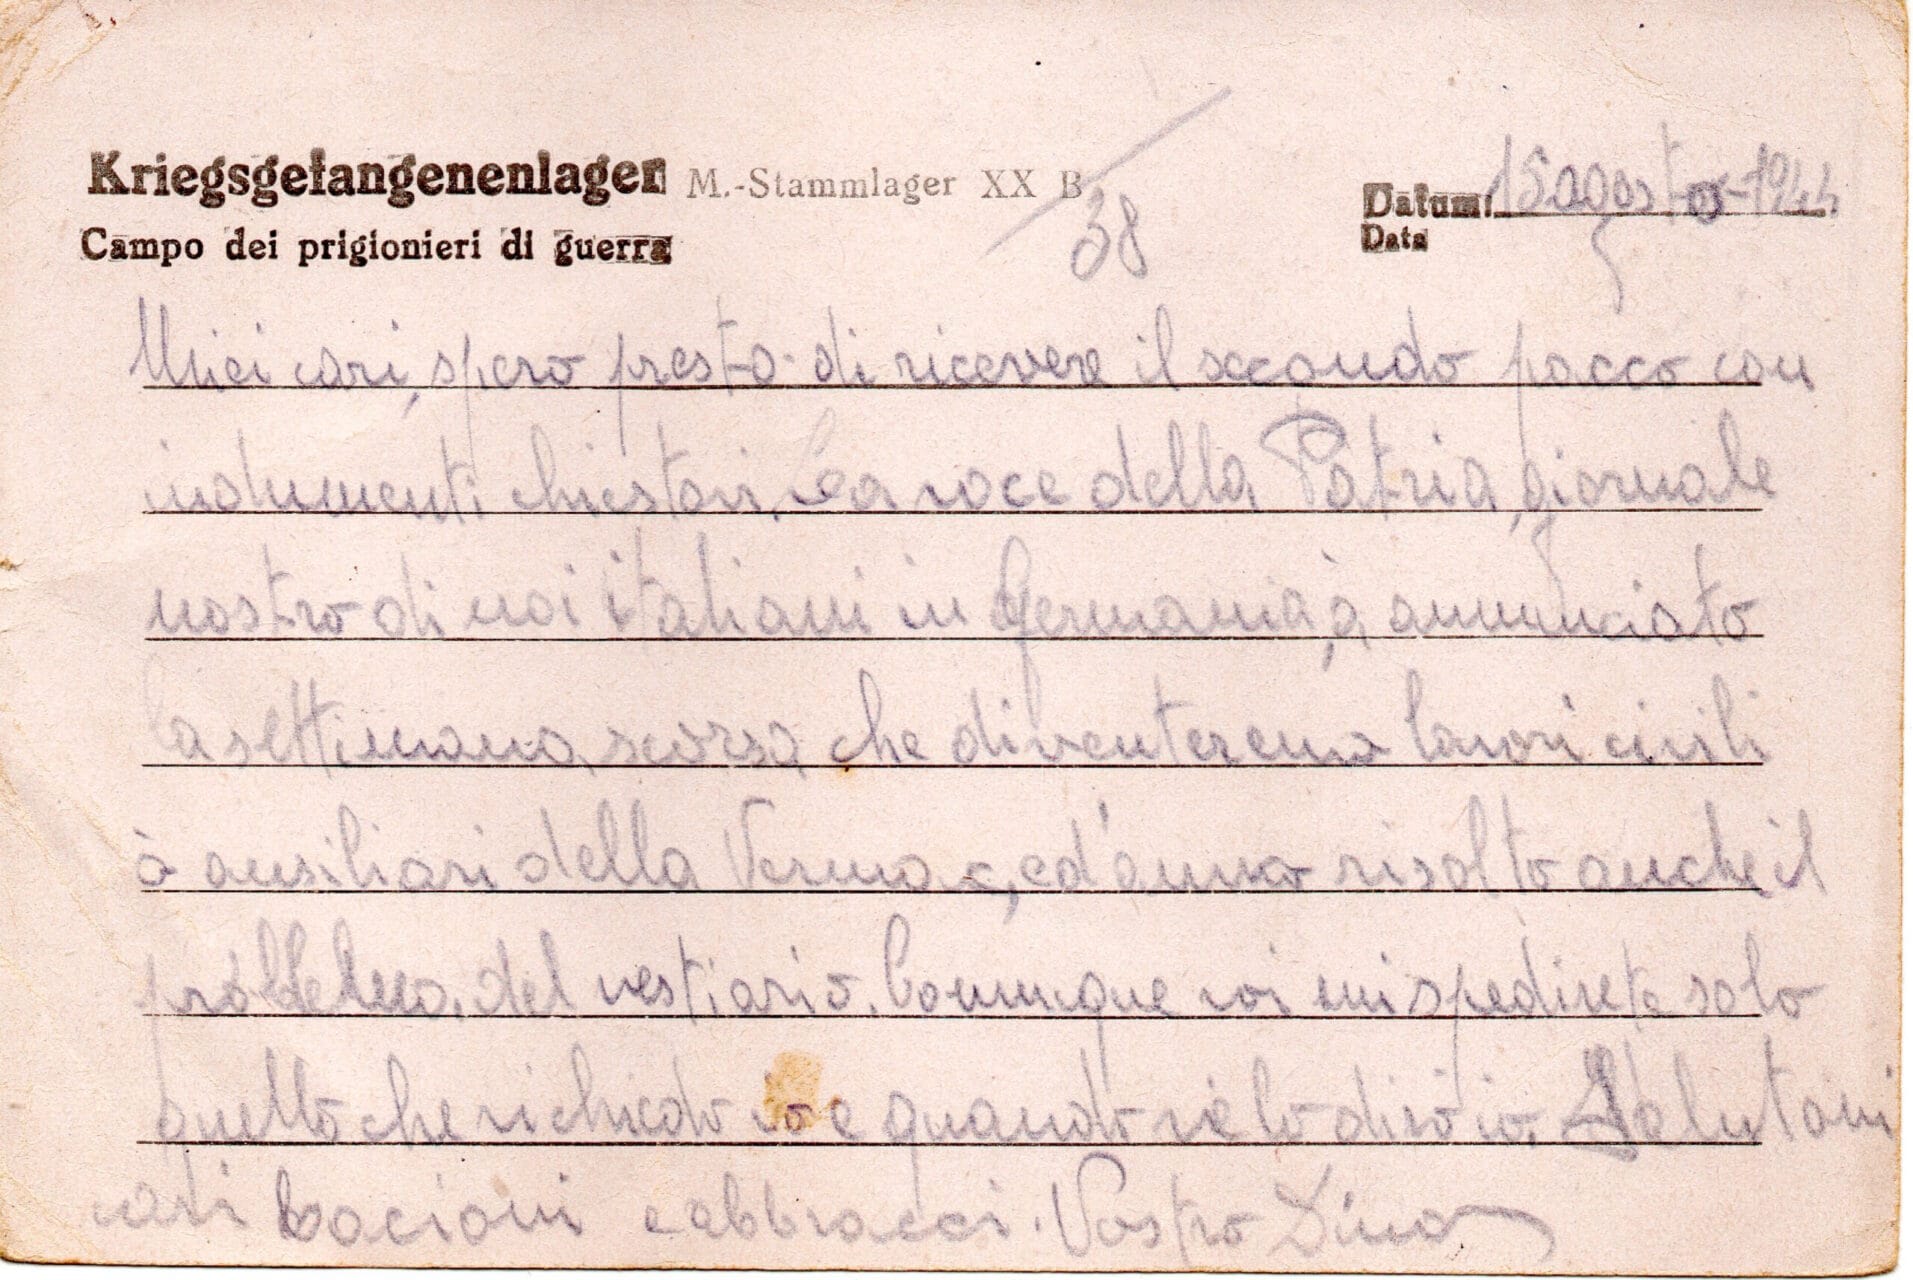 Kriegsgefangenenlager M.-Stammlager XX B
Campo dei prigionieri di guerra
38
Datum: 15 agosto-1944
Data
Miei cari, spero presto di ricevere il secondo pacco con
indumenti chiestovi. La voce della Patria, giornale
nostro di noi italiani in Germania, à annunciato
la settimana scorsa che diventeremo lavori civili
ò ausiliari della Vermac, ed'anno risolto anche il
problema del vestiario. Comunque voi mi spedirete solo
quello che richiedo io e quando ve lo dirò io. Salutoni
cari bacioni e abbracci. Vostro Dino